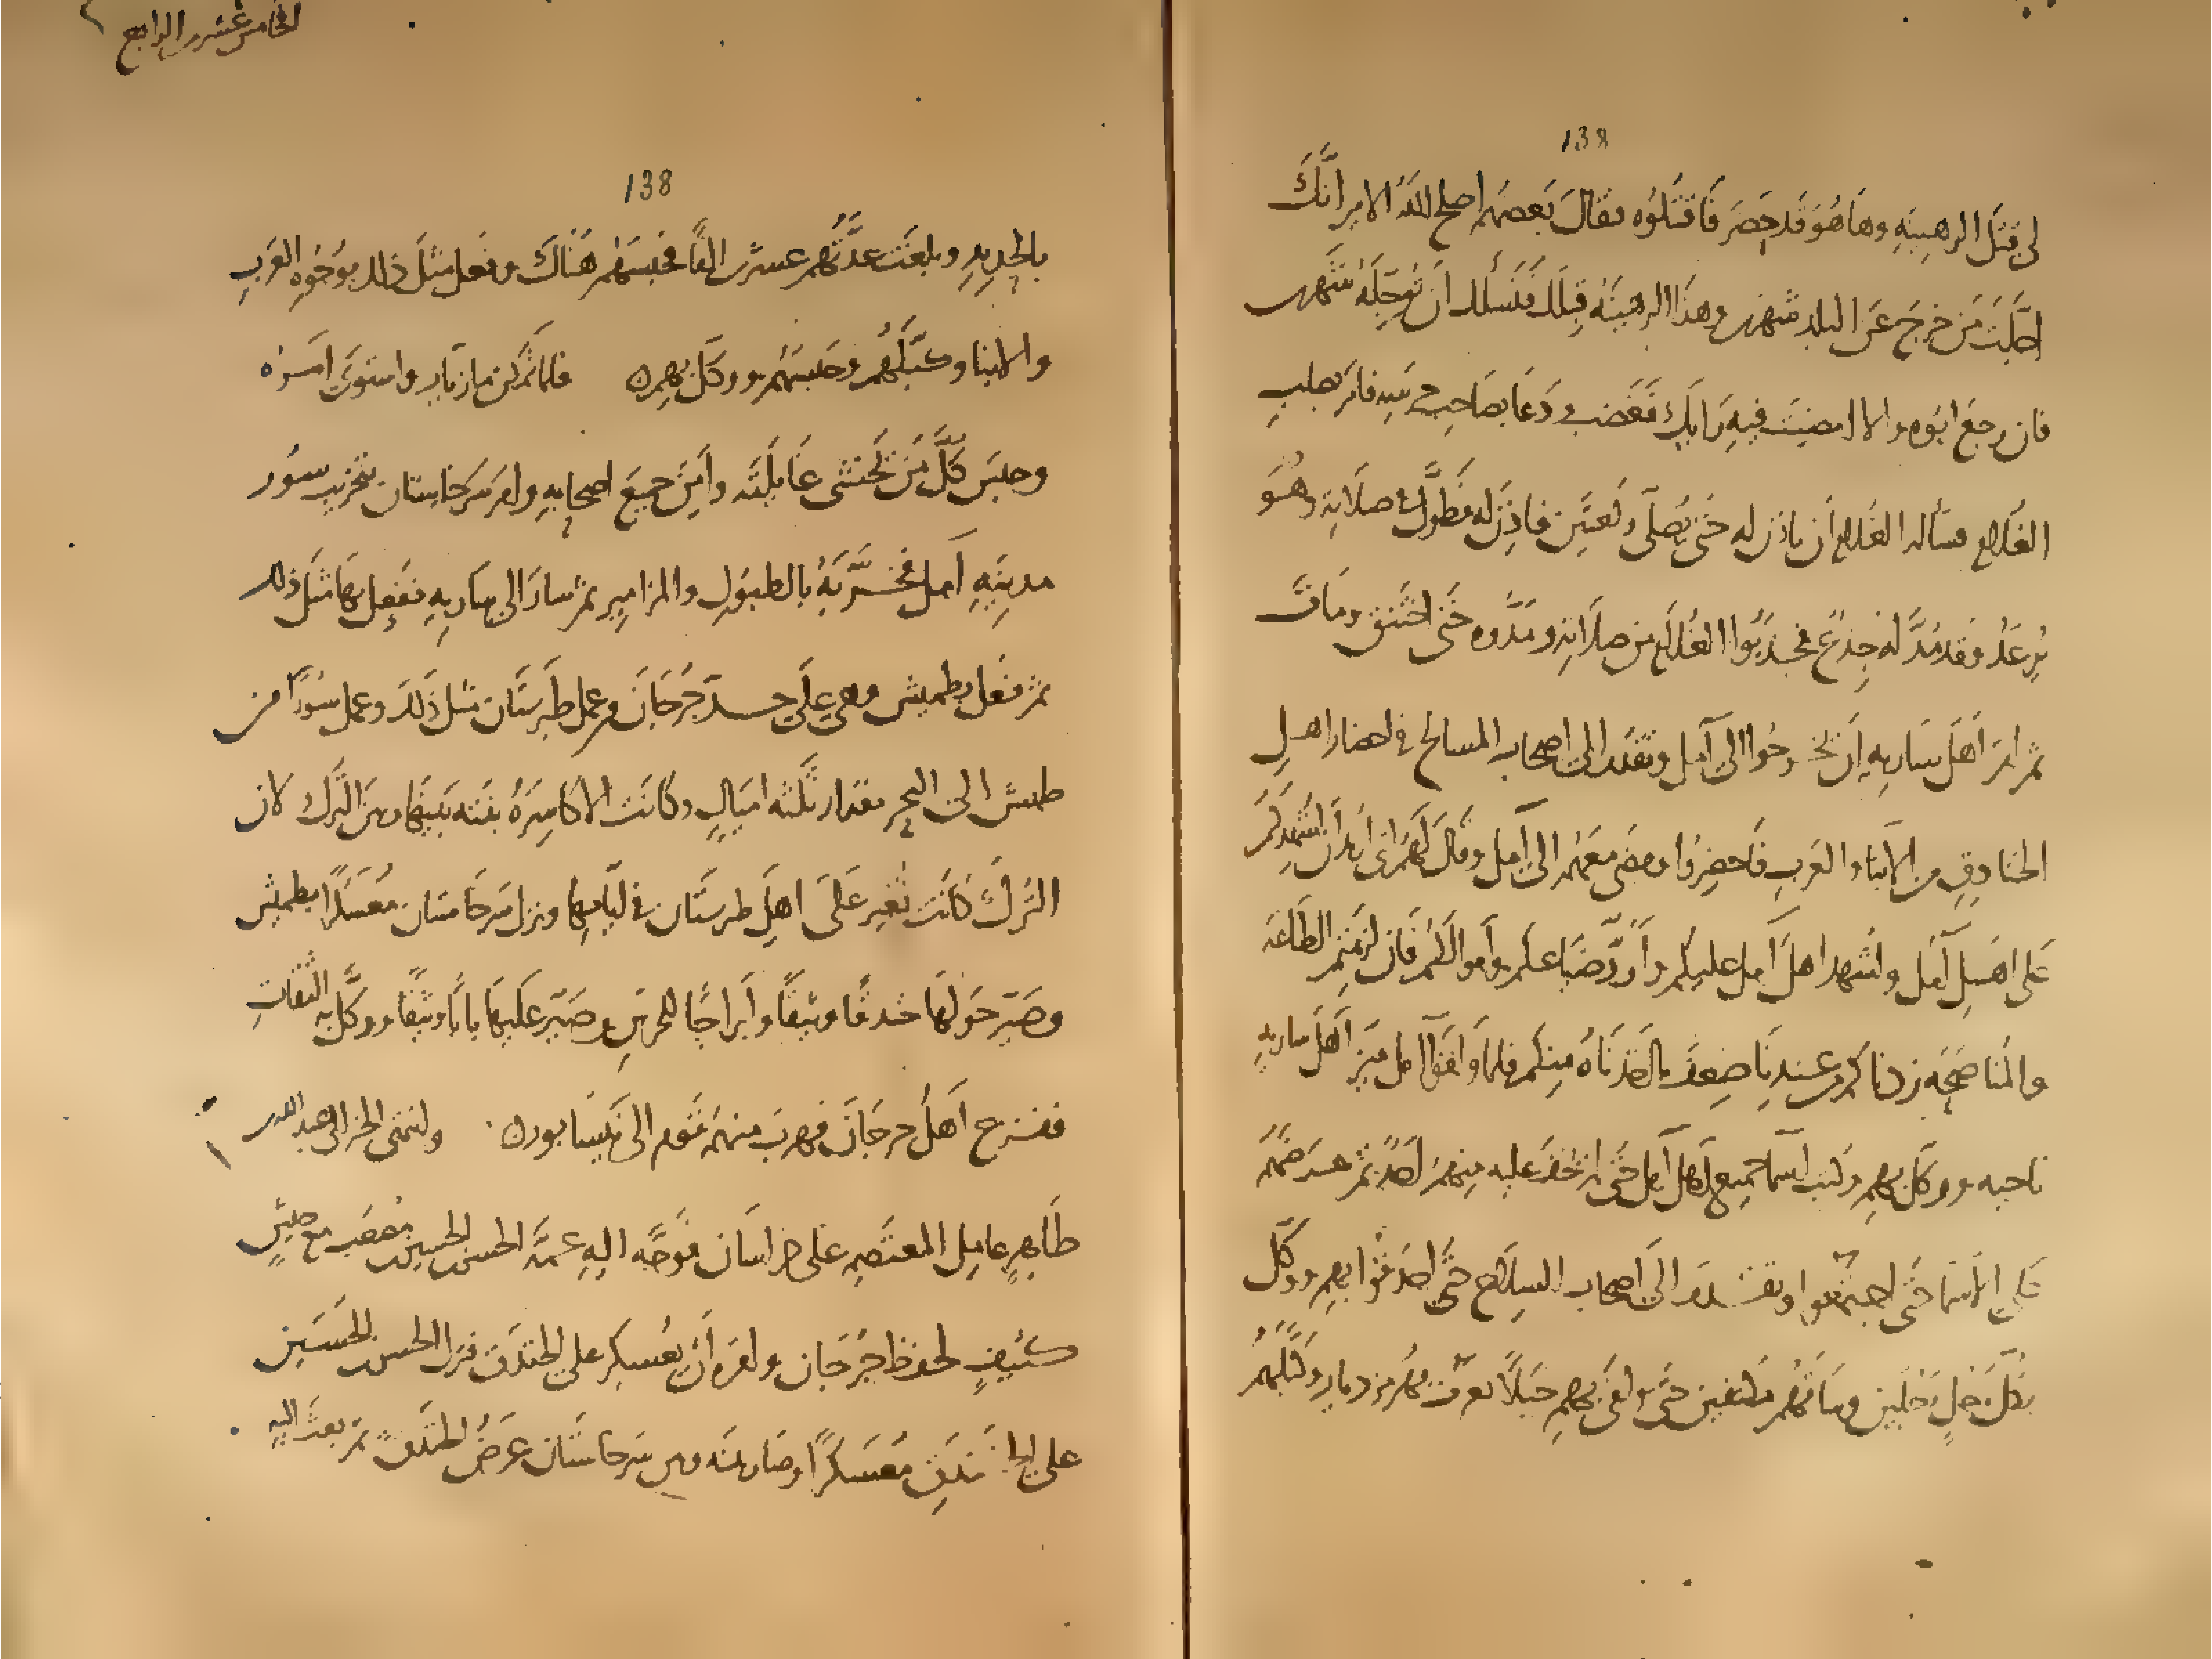 138
لى قتل الرهينه وها هو قد حضر فاقتلوه فقال بعضهم اصلح الله الامير انك
اجّلت من خرج عن البلد شهرين وهذا الرهينه قبلك فنسلك ان تؤجله شهرين
فان رجع ابوه والا امضيت فيه رايك فغضب ودعا بصاحب حرسه فامر بصلب
الغلام فسأله الغلام أن ياذن له حتى يصلى ركعتين فاذن له فطوّل فى صلاته وهو
يرعد وقد مدّ له جذع فجذبوا الغلام من صلاته ومدّوه حتى اختنق ومات
ثم امر أهل ساريه أن يخرجوا الى آمل وتقدم الى اصحاب المسالح فى احضار اهل
الخنادق من الابنا والعرب فاحضروا ومضى معهم الى آمل وقال لهم انى اريد أن اشهدكم
على اهل آمل واشهد اهل آمل عليكم واردّ ضياعكم وأموالكم فان لزمتم الطاعه
والمناصحه زدناكم من عندنا ضعف ما اخذناه منكم فلما وافوا آمل ميز أهل ساريه
ناحيه ووكّل بهم وكتب اسما جميع أهل آمل حتى لم يخف عليه منهم احد ثم عرضهم
على الاسما حتى اجتمعوا وتقدم الى أصحاب السلاح حتى احدقوا بهم ووكّل
بكل رجل رجلين وساقهم مكتفين حتى وافى بهم جبلاً يعرف بهرمزدباد وكبّلهم
الخامس عشر الرابع
138
بالحديد وبلغت عدّتهم عشرين الفًا فحبسهم هناك وفعل مثل ذلك بوجوه العرب
والابنا وكبّلهم وحبسهم ووكل بهم ه فلما تمكن مازيار واستوى امره
وحبس كلّ من تخشى غايلته وأمن جميع اصحابه وامر سرخاستان بتخريب سور
مدينه آمل فخرّبه بالطبول والمزامير ثم سار الى ساريه ففعل بها مثل ذلك
ثم فعل بطميش وهى على حد جرجان من عمل طبرستان مثل ذلك وعمل سورًا من
طميش الى البحر مقدار ثلثه اميال وكانت الاكاسره بنته بينها وبين الترك لان
الترك كانت تغير على اهل طبرستان فى ايامها ونزل سرخاستان معسكرًا بطميش
وصيّر حولها خندقًا وثيقًا وأبراجًا للحرس وصيّر عليها بابًا وثيقًا ووكّل به الثقات
ففزع اهل جرجان فهرب منهم قوم الى نيسابور ه وانتهى الخبر الى عبد الله بن
طاهر عامل المعتصم على خراسان فوجّه اليه عمّه الحسن بن الحسين بن مصعب مع جيش
كثيف لحفظ جرجان وامره أن يعسكر على الخندق فنزل الحسن بن الحسين
على الخندق معسكرًا وصار بينه وبين سرخاستان عرض الخندق ثم بعث اليه